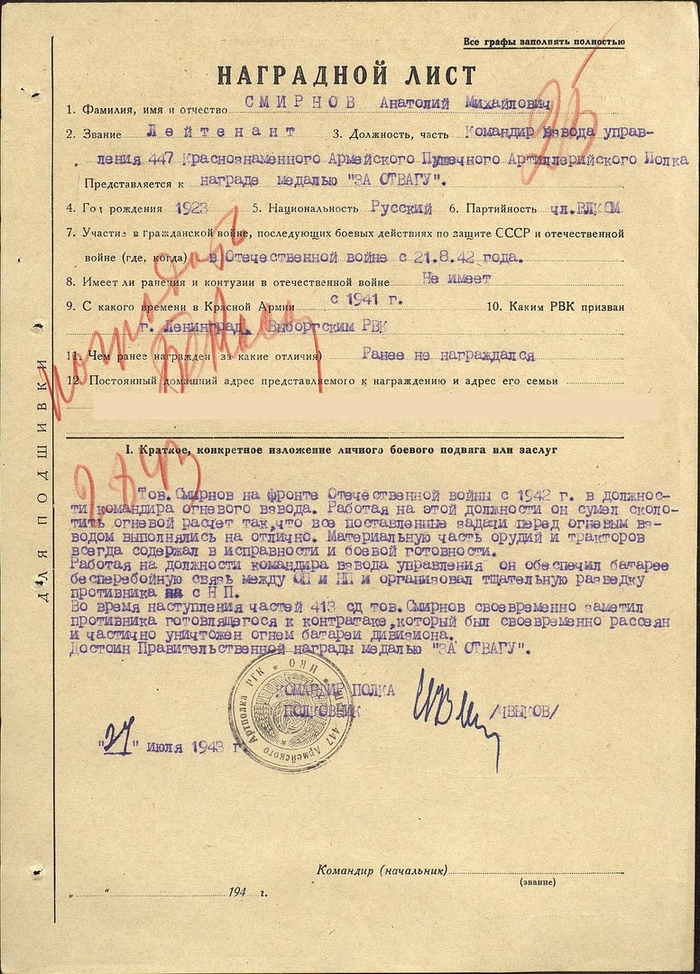 Все графы заполнять полностью
НАГРАДНОЙ ЛИСТ
1. Фамилия, имя и отчество СМИРНОВ Анатолий Михайлович
2. Звание Лейтенант 3. Должность, часть Командир взвода управ-
ления 447 Краснознаменного Армейского Пушечного Артиллерийского Полка
Представляется к награде медалью "ЗА ОТВАГУ".
4. Год рождения 1923 5. Национальность Русский 6. Партийность чл.ВЛКСМ
7. Участие в гражданской войне, последующих боевых действиях по защите СССР и отечественной
войне (где, когда) в Отечественной войне с 21.8.42 года.
8. Имеет ли ранения и контузии в отечественной войне Не имеет
9. С какого времени в Красной Армии с 1941 г. 10. Каким РВК призван
г. Ленинград, Выборгским РВК
11. Чем ранее награжден за какие отличия) Ранее не награждался
12. Постоянный домашний адрес представляемого к награждению и адрес его семьи
I. Краткое, конкретное изложение личного боевого подвига или заслуг
Тов. Смирнов на фронте Отечественной войны с 1942 г. в должнос-
ти командира огневого взвода. Работая на этой должности он сумел сколо-
тить огневой расчет так,что все поставленные задачи перед огневым вз-
водом выполнялись на отлично. Материальную часть орудий и тракторов
всегда содержал в исправности и боевой готовности.
Работая на должности командира взвода управления он обеспечил батарее
бесперебойную связь между ОП и НП и организовал тщательную разведку
противника с Н П.
Во время наступления частей 413 сд тов. Смирнов своевременно заметил
противника готовящегося к контратаке,который был своевременно рассеян
и частично уничтожен огнем батареи дивизиона.
Достоин Правительственной награды медалью "ЗА ОТВАГУ".
КОМАНДИР ПОЛКА
ПОЛКОВНИК /ЧВЫКОВ/
"27" июля 1943 г
447 Армейского Артполка РГК * НКО
Командир (начальник)
(звание)
„ “ 194 г.
ДЛЯ ПОДШИВКИ
наградить